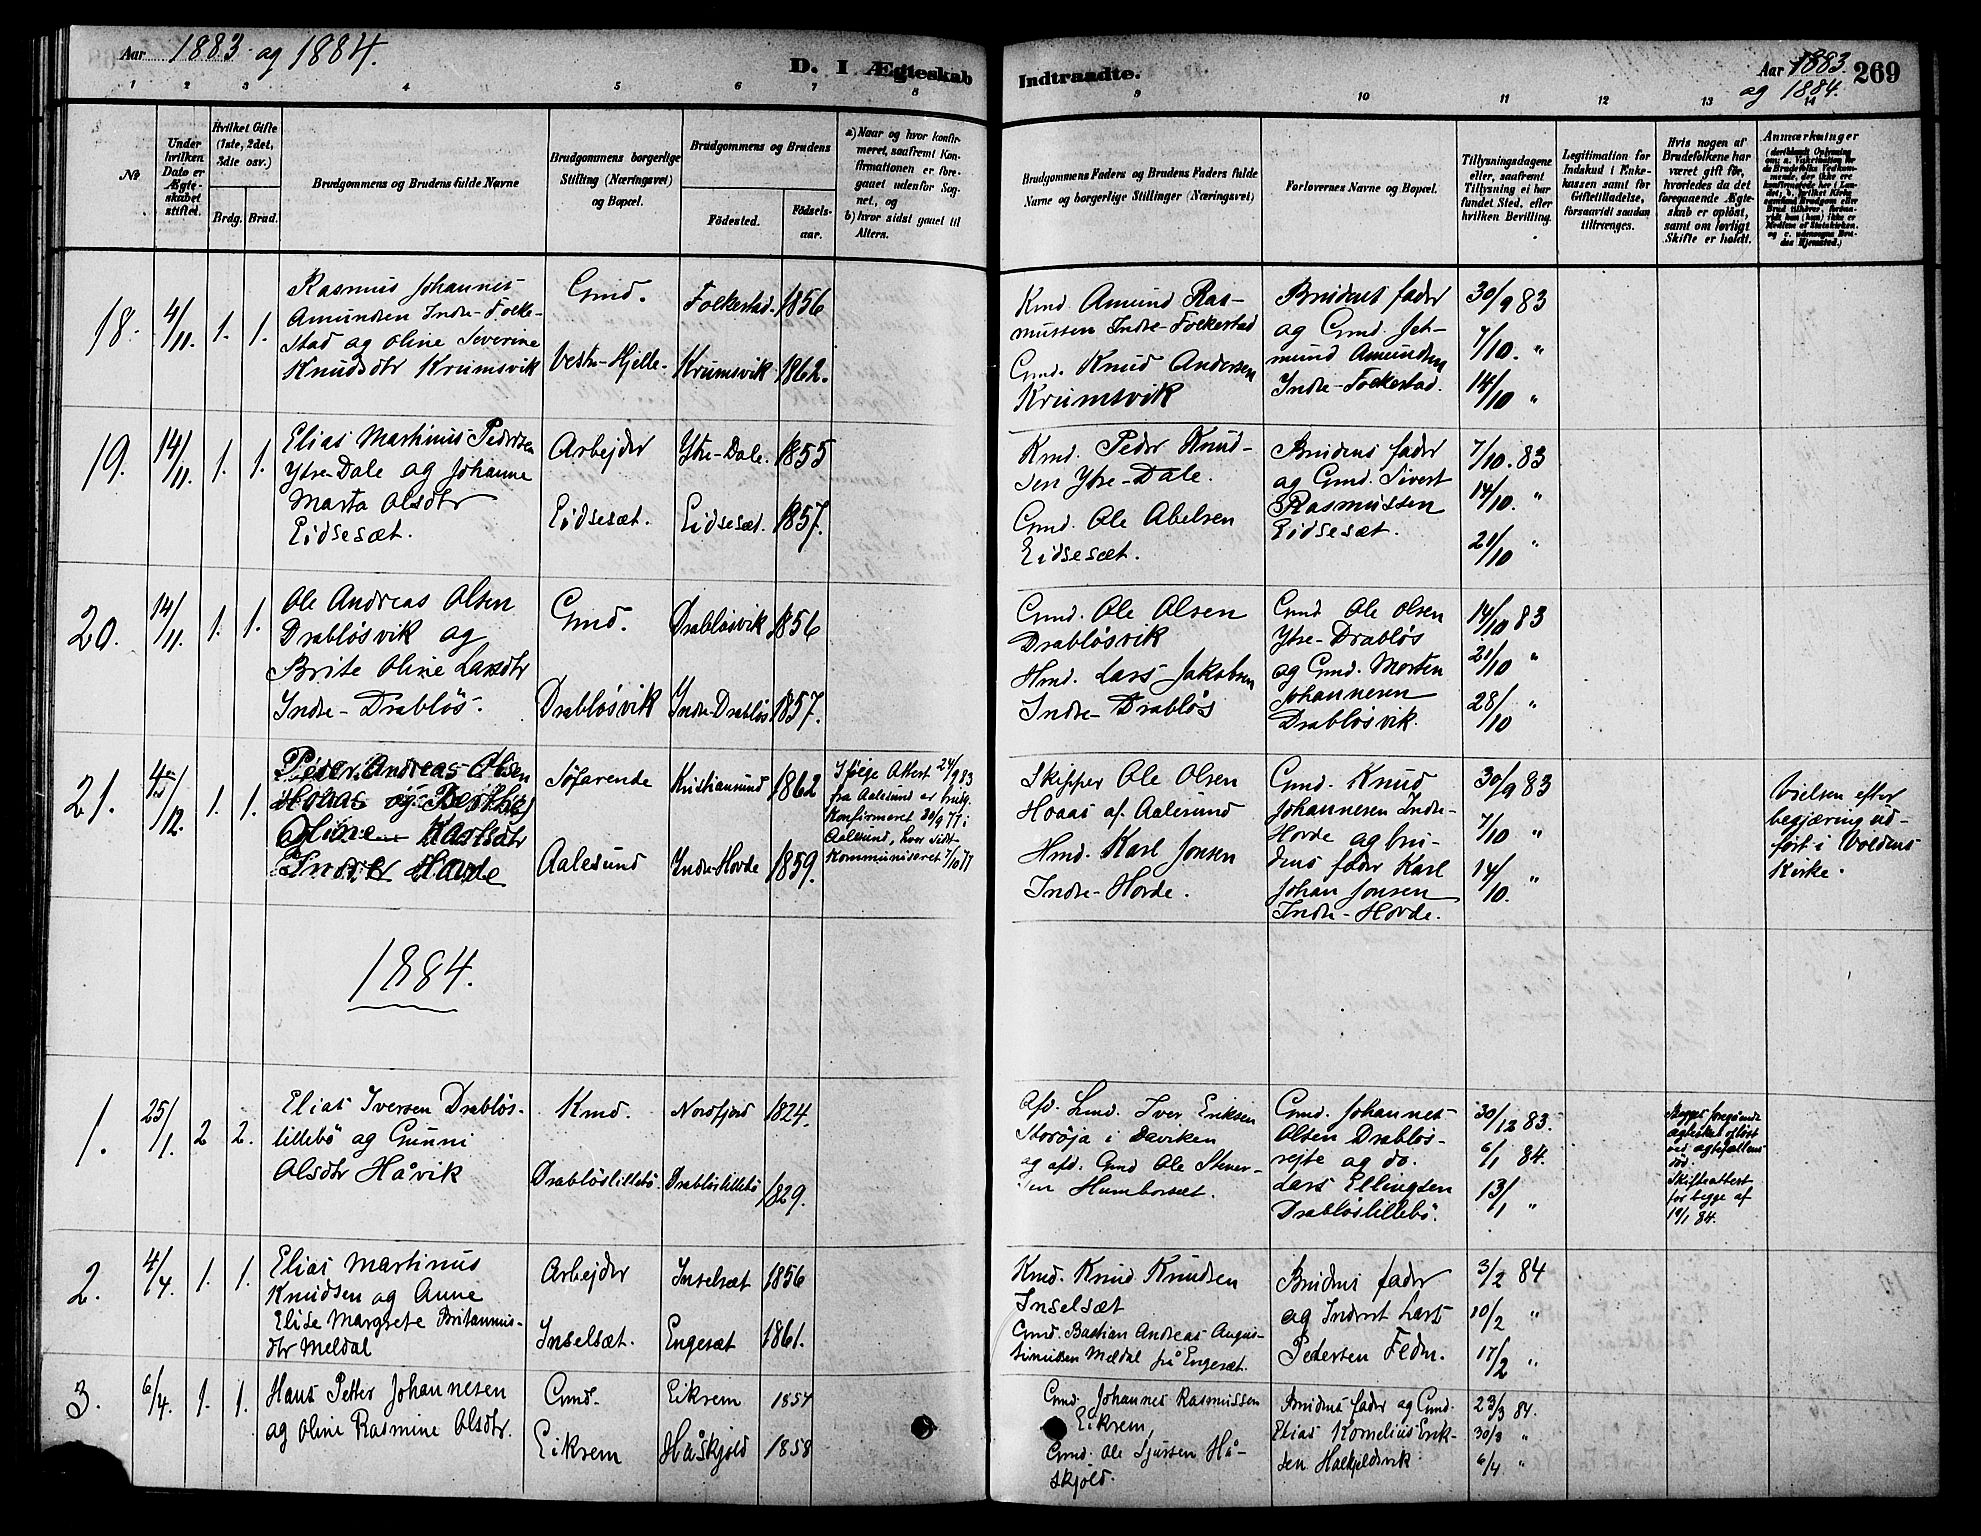 Aar 1883 og 1884.
D. I Ægteskab
Indtraadte.
Aar 1883.
og 1884.
269
1 2 3 4 5 6 7 8
9 10 11 12 13 14
No
Under hvilken Dato er Ægteskabet stiftet.
Hvilket Gifte (1ste, 2det, 3die osv.)
Brdg. Brud.
Brudgommens og Brudens fulde Navne
Brudgommens borgerlige Stilling (Næringsvei) og Bopæl.
Brudgommens og Brudens
Fødested.
Fødselsaar.
a) Naar og hvor konfirmeret, saafremt Konfirmationen er foregaaet udenfor Sognet, og
b) hvor sidst gaaet til Alters.
Brudgommens Faders og Brudens Faders fulde Navne og borgerlige Stillinger (Næringsvei)
Forlovernes Navne og Bopæl.
Tillysningsdagene eller, saafremt Tillysning ei har fundet Sted, efter hvilken Bevilling.
Legitimation for Indskud i Enkekassen samt for Giftetilladelse, forsaavidt saadan tiltrænges.
Hvis nogen af Brudefolkene har været gift før, hvorledes da det foregaaende Ægteskab er opløst, samt om lovligt Skifte er holdt.
Anmærkninger
18. 4/11. 1. 1.
Rasmus Johannes
Amundsen Indre-Folke-
stad og Oline Severine
Knudsdtr Krumsvik
Gmd.
Vestre-Hjelle.
Folkestad. 1856
Krumsvik 1862.
Kmd. Amund Ras-
mussen Indre-Folkestad
Gmd. Knud Andersen
Krumsvik
Brudens fader
og Gmd. Jet-
mund Amundsen
Indre-Folkestad.
30/9 83
7/10. "
14/10 "
19. 14/11. 1. 1.
Elias Martinus Pedersen
Ytre-Dale og Johanne
Marta Olsdtr
Eidsesæt.
Arbejder
Eidsesæt.
Ytre-Dale. 1855
Eidsesæt. 1857.
Kmd. Peder Knud-
sen Ytre-Dale.
Gmd. Ole Abelsen
Eidsesæt.
Brudens fader
og Gmd. Sivert
Rasmussen
Eidsesæt.
7/10. 83
14/10. "
21/10 "
20. 14/11. 1. 1.
Ole Andreas Olsen
Drabløsvik og
Brite Oline Larsdtr
Indre-Drabløs.
Gmd.
Drabløsvik
Drabløsvik 1856
Indre-Drabløs 1857.
Gmd. Ole Olsen
Drabløsvik
Hmd. Lars Jakobsen
Indre-Drabløs
Gmd Ole Olsen
Ytre-Drabløs
og Gmd. Morten
Johannesen
Drabløsvik.
14/10 83
21/10 "
28/10 "
21. /12. 1. 1.
Peder Andreas Olsen
Hoaas og Berthe
Oline Karlsdtr
Indre Hovde
Søfarende
Aalesund
Kristiansund 1862
Indre-Hovde 1859.
Ifølge Attest 24/9 83
fra Aalesund er brdg.
konfirmeret 30/9 77 i
Aalesund, hvor sidst
kommuniseret 7/10 77
Skipper Ole Olsen
Hoaas af Aalesund
Hmd. Karl Jonsen
Indre-Hovde.
Gmd. Knud
Johannesen Indre-
Hovde og bru-
dens fader Karl
Johan Jonsen
Indre-Hovde.
30/9 83
7/10 "
14/10. "
Vielsen efter
begjæring ud-
ført i Voldens
Kirke.
1884.
1. 25/1. 2 2.
Elias Iversen Drabløs-
lillebø og Gunni
Olsdtr Håvik
Kmd.
Drabløslillebø.
Nordfjord 1824.
Drabløslillebø 1829.
Afd. Lmd. Iver Eriksen
Storøja i Daviken
og afd. Gmd Ole Stener-
sen Humborsæt.
Gmd. Johannes
Olsen Drabløs-
rejte og do.
Lars Ellingsen
Drabløslillebø.
30/12 83.
6/1 84.
13/1 "
Begges foregående
ægteskab opløst
ved ægtefællens
død.
Skifteattest
for begge af
19/1 84.
2. 4/4. 1. 1.
Elias Martinus
Knudsen og Anne
Elise Margrete
dtr Meldal
Arbejder
Inselsæt.
Inselsæt 1856
Engesæt 1861.
Kmd. Knud Knudsen
Inselsæt
Gmd. Bastian Andreas Augus-
tinussen Meldal frå Engesæt.
Brudens fader
og Inderst Lars
Pedersen Fedm.
3/2 84
10/2 "
17/2 "
3. 6/4. 1. 1.
Hans Petter Johannesen
og Oline Rasmine Olsdtr.
Gmd.
Eikrem
Eikrem 1857
Håskjold 1858
Gmd. Johannes Rasmussen
Eikrem,
Gmd. Ole Sjursen Hå-
skjold.
Brudens fader og Gmd.
Elias Kornelius Erik-
sen Halkjelsvik
23/3 84.
30/3 "
6/4 "